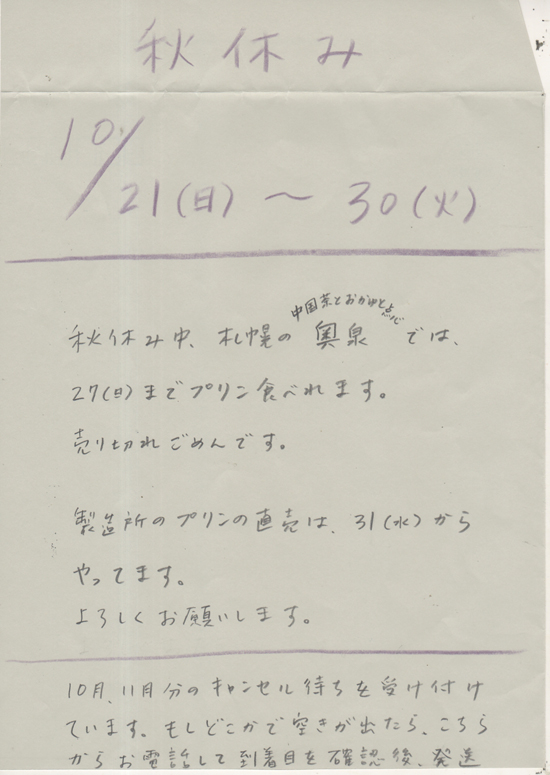 秋休み
10/21(日)～30(火)
中国茶とおかゆと点心
秋休み中、札幌の奥泉では、
27(日)までプリン食べれます。
売り切れごめんです。
製造所のプリンの直売は、31(水)から
やってます。
よろしくお願いします。
10月、11月分のキャンセル待ちを受け付け
ています。もしどこかで空きが出たら、こちら
からお電話して到着日を確認後、発送